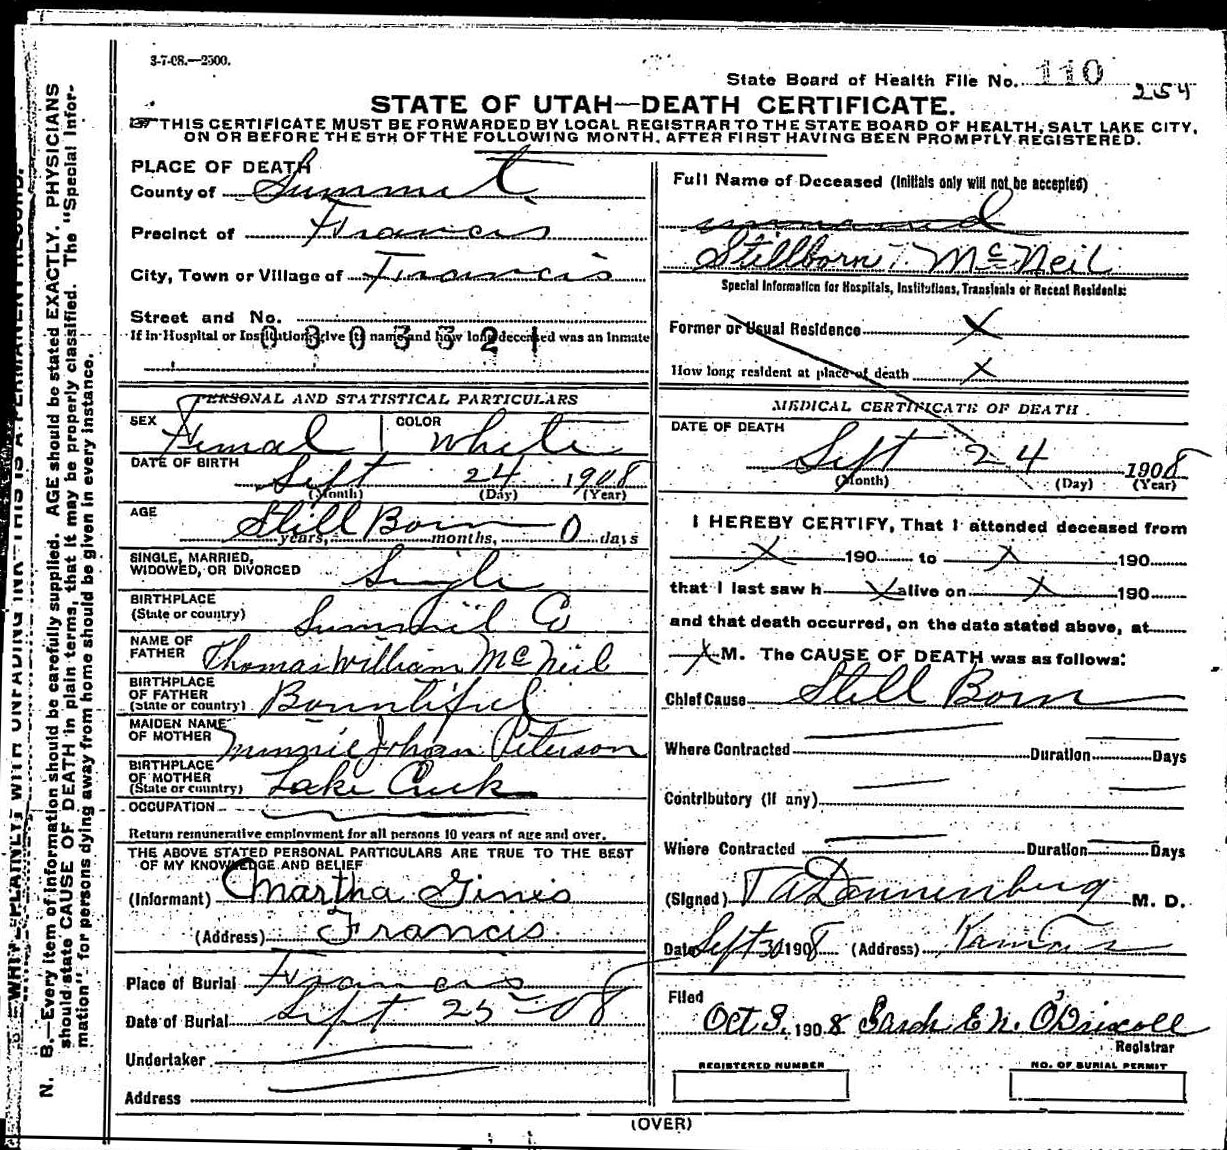 3-7-08.—2500.
State Board of Health File No. 110
254
STATE OF UTAH—DEATH CERTIFICATE.
THIS CERTIFICATE MUST BE FORWARDED BY LOCAL REGISTRAR TO THE STATE BOARD OF HEALTH, SALT LAKE CITY,
ON OR BEFORE THE 5TH OF THE FOLLOWING MONTH, AFTER FIRST HAVING BEEN PROMPTLY REGISTERED.
PLACE OF DEATH
County of Summit
Precinct of Francis
City, Town or Village of Francis
Street and No.
If in Hospital or Institution, give its name and how long deceased was an inmate
0303321
PERSONAL AND STATISTICAL PARTICULARS
SEX Femal COLOR White
DATE OF BIRTH Sept 24 1908
(Month) (Day) (Year)
AGE Still Born 0 days
years, months,
SINGLE, MARRIED,
WIDOWED, OR DIVORCED Single
BIRTHPLACE
(State or country) Summit Co
NAME OF
FATHER Thomas William McNeil
BIRTHPLACE
OF FATHER
(State or country) Bountiful
MAIDEN NAME
OF MOTHER Minnie Johan Peterson
BIRTHPLACE
OF MOTHER
(State or country) Lake Creek
OCCUPATION
Return remunerative employment for all persons 10 years of age and over.
THE ABOVE STATED PERSONAL PARTICULARS ARE TRUE TO THE BEST
OF MY KNOWLEDGE AND BELIEF
(Informant) Martha Gines
(Address) Francis
Place of Burial Francis
Date of Burial Sept 25-08
Undertaker
Address
Full Name of Deceased (Initials only will not be accepted)
unnamed
Stillborn McNeil
Special Information for Hospitals, Institutions, Transients or Recent Residents:
Former or Usual Residence X
How long resident at place of death X
MEDICAL CERTIFICATE OF DEATH
DATE OF DEATH
Sept 24 1908
(Month) (Day) (Year)
I HEREBY CERTIFY, That I attended deceased from
X 190 to X 190
that I last saw h X alive on X 190
and that death occurred, on the date stated above, at
X M. The CAUSE OF DEATH was as follows:
Chief Cause Still Born
Where Contracted Duration Days
Contributory (if any)
Where Contracted Duration Days
(Signed) Dannenberg M. D.
Date Sept 30 1908 (Address) Kamas
Filed
Oct 3, 1908 Sarah E N. O'Driscoll
Registrar
REGISTERED NUMBER
NO. OF BURIAL PERMIT
(OVER)
N. B.—Every item of information should be carefully supplied. AGE should be stated EXACTLY. PHYSICIANS
should state CAUSE OF DEATH in plain terms, that it may be properly classified. The "Special Infor-
mation" for persons dying away from home should be given in every instance.
WRITE PLAINLY WITH UNFADING INK—THIS IS A PERMANENT RECORD.